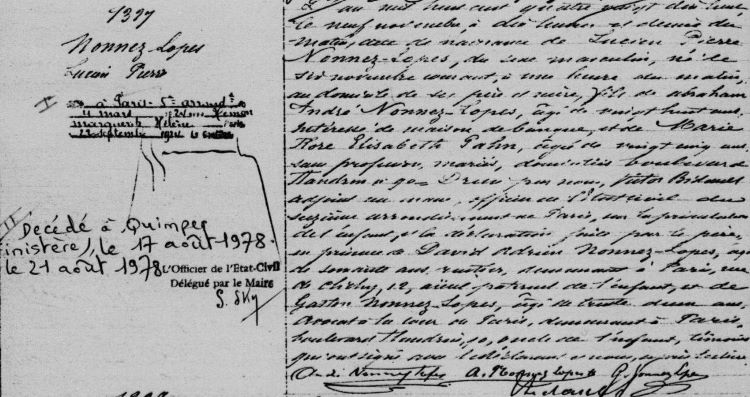 1397
Nonnez-Lopes
Lucien Pierre
I
à Paris
4 mars
marguerite Hélène
22 septembre 1924
II
Décédé à Quimper
inistère), le 17 août 1978.
le 21 août 1978
L'Officier de l'Etat-Civil
Délégué par le Maire
L'an mil huit cent quatre vingt dix
le neuf novembre, à dix heures et demie du
matin, acte de naissance de Lucien Pierre
Nonnez-Lopes, du sexe masculin, né le
six novembre courant, à une heure du matin,
au domicile de ses père et mère, fils de abraham
André Nonnez-Lopes, âgé de vingt huit ans,
intéressé de maison de banque, et de Marie
Rose Elisabeth, âgée de vingt cinq ans,
sans profession, mariés, domiciliés boulevard
par nous, Victor
adjoint au maire, officier de l'Etat civil du
seizième arrondissement de Paris, sur la présentation
de l'enfant, et la déclaration faite par le père,
en présence de David Adrien Nonnez-Lopes, âgé
de soixante ans, rentier, demeurant à Paris, rue
de Clichy, 12, aïeul paternel de l'enfant, et de
Gaston Nonnez-Lopes, âgé de trente deux ans,
avocat à la cour de Paris, demeurant à Paris,
boulevard, oncle de l'enfant, témoins
qui ont signé avec le déclarant et nous, après lecture.